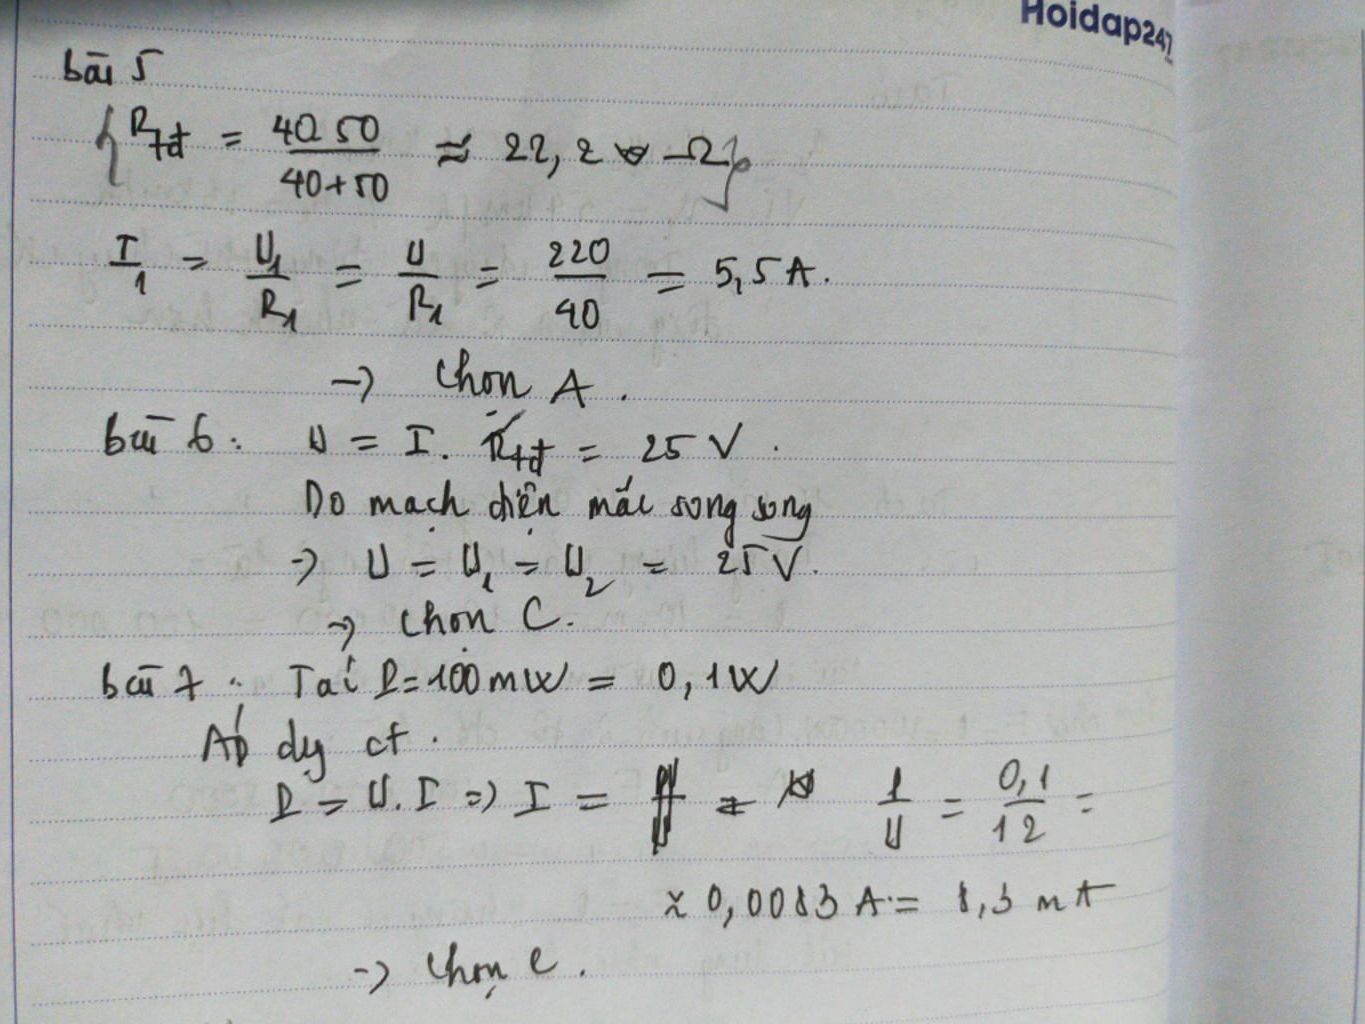 Hoidap247
bài 5
{ Rtđ = 40.50 / 40+50 ≈ 22,2 Ω }
I1 = U1/R1 = U/R1 = 220/40 = 5,5A.
→ Chọn A.
bài 6: U = I. Rtđ = 25 V.
Do mạch điện mắc song song
→ U = U1 = U2 = 25V.
→ Chọn C.
bài 7: Taí P=100mW = 0,1W
Áp dg ct:
P = U.I => I = P/U = 0,1/12 =
≈ 0,0083 A = 8,3 mA
→ Chọn C.